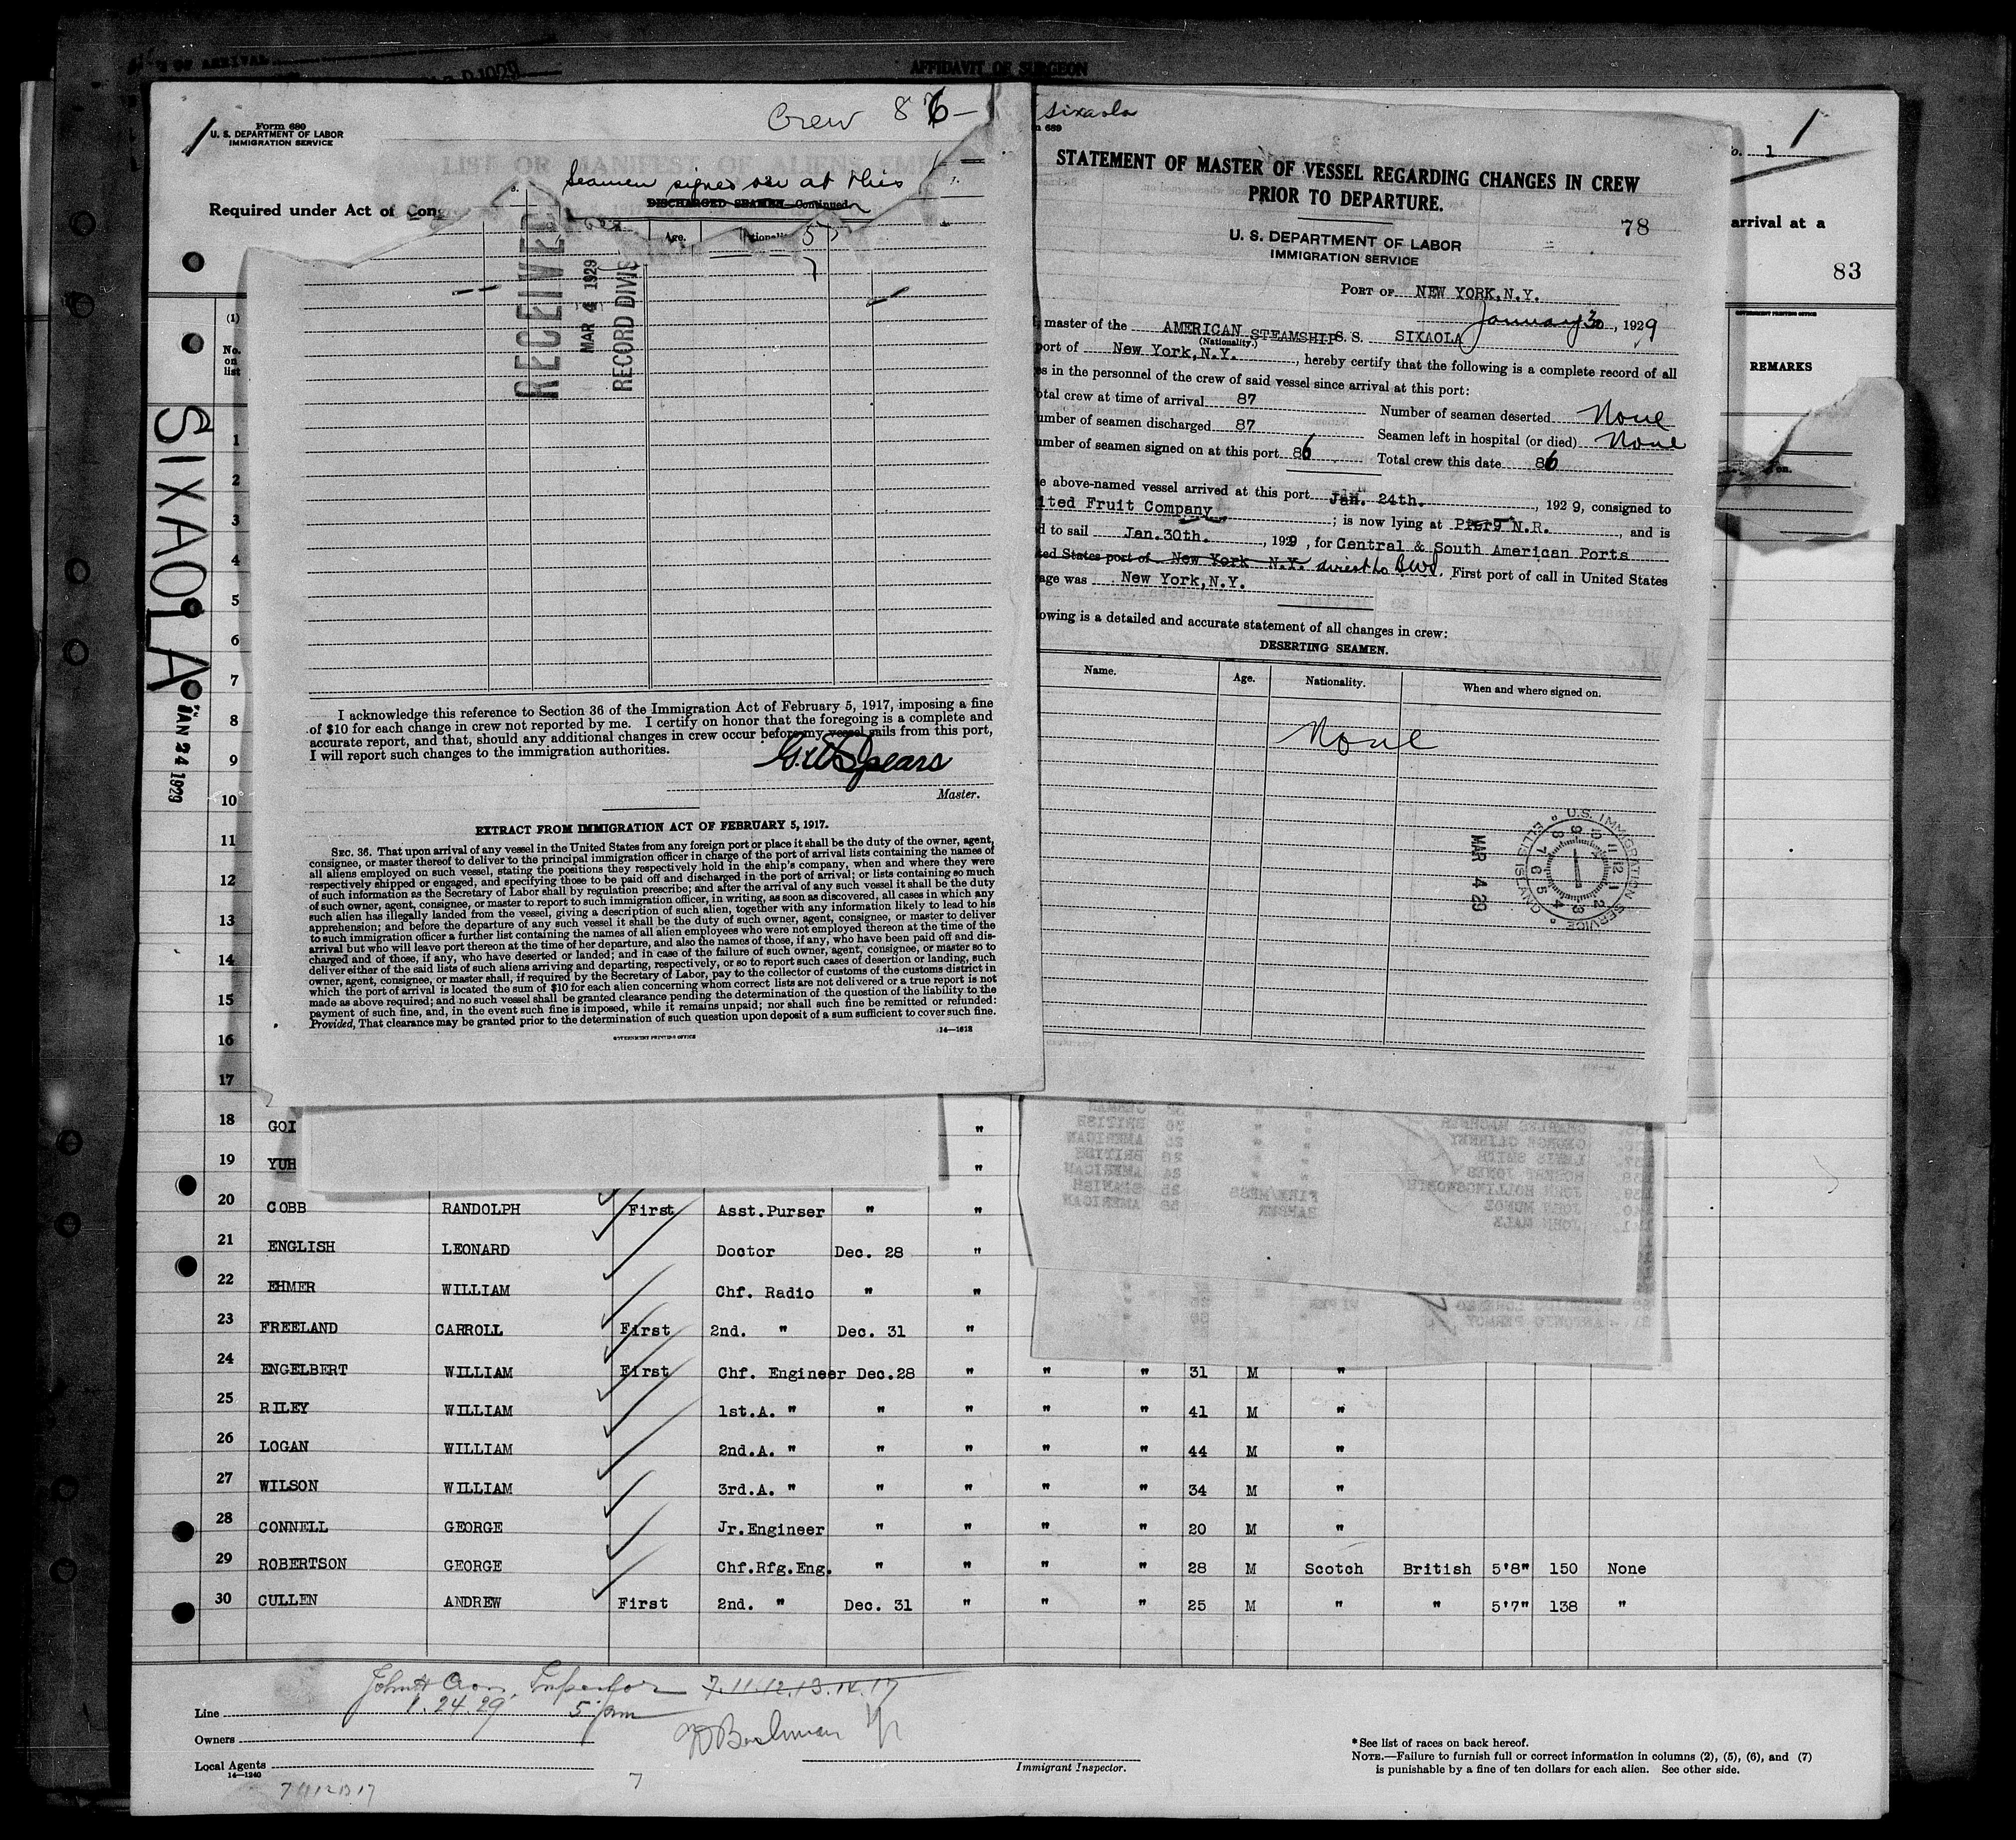 AFFIDAVIT OF SURGEON
Crew 86
Form 680
U. S. DEPARTMENT OF LABOR
IMMIGRATION SERVICE
LIST OR MANIFEST OF ALIENS
Required under Act of Cong
Seamen signed on at this
DISCHARGED SEAMEN—Continued
Age.
RECEIVED
MAR 4 1929
RECORD DIVIS
(1)
No.
on
list
SIXAOLA
JAN 24 1929
I acknowledge this reference to Section 36 of the Immigration Act of February 5, 1917, imposing a fine
of $10 for each change in crew not reported by me. I certify on honor that the foregoing is a complete and
accurate report, and that, should any additional changes in crew occur before my vessel sails from this port,
I will report such changes to the immigration authorities.
G.W. Spears
Master.
EXTRACT FROM IMMIGRATION ACT OF FEBRUARY 5, 1917.
SEC. 36. That upon arrival of any vessel in the United States from any foreign port or place it shall be the duty of the owner, agent,
consignee, or master thereof to deliver to the principal immigration officer in charge of the port of arrival lists containing the names of
all aliens employed on such vessel, stating the positions they respectively hold in the ship's company, when and where they were
respectively shipped or engaged, and specifying those to be paid off and discharged in the port of arrival; or lists containing so much
of such information as the Secretary of Labor shall by regulation prescribe; and after the arrival of any such vessel it shall be the duty
of such owner, agent, consignee, or master to report to such immigration officer, in writing, as soon as discovered, all cases in which any
such alien has illegally landed from the vessel, giving a description of such alien, together with any information likely to lead to his
apprehension; and before the departure of any such vessel it shall be the duty of such owner, agent, consignee, or master to deliver
to such immigration officer a further list containing the names of all alien employees who were not employed thereon at the time of the
arrival but who will leave port thereon at the time of her departure, and also the names of those, if any, who have been paid off and dis-
charged and of those, if any, who have deserted or landed; and in case of the failure of such owner, agent, consignee, or master so to
deliver either of the said lists of such aliens arriving and departing, respectively, or so to report such cases of desertion or landing, such
owner, agent, consignee, or master shall, if required by the Secretary of Labor, pay to the collector of customs of the customs district in
which the port of arrival is located the sum of $10 for each alien concerning whom correct lists are not delivered or a true report is not
made as above required; and no such vessel shall be granted clearance pending the determination of the question of the liability to the
payment of such fine, and, in the event such fine is imposed, while it remains unpaid; nor shall such fine be remitted or refunded:
Provided, That clearance may be granted prior to the determination of such question upon deposit of a sum sufficient to cover such fine.
14—1612
GOVERNMENT PRINTING OFFICE
Sixaola
STATEMENT OF MASTER OF VESSEL REGARDING CHANGES IN CREW
PRIOR TO DEPARTURE.
78
U. S. DEPARTMENT OF LABOR
IMMIGRATION SERVICE
PORT OF NEW YORK, N.Y.
January 30, 1929
master of the AMERICAN STEAMSHIP S. S. SIXAOLA
(Nationality.)
port of New York, N.Y., hereby certify that the following is a complete record of all
es in the personnel of the crew of said vessel since arrival at this port:
otal crew at time of arrival 87 Number of seamen deserted None
umber of seamen discharged 87 Seamen left in hospital (or died) None
umber of seamen signed on at this port 86 Total crew this date 86
e above-named vessel arrived at this port Jan. 24th., 1929, consigned to
ited Fruit Company; is now lying at Pier 9 N.R., and is
d to sail Jan. 30th., 1929, for Central & South American Ports
ted States port of New York N.Y. direct to BWI. First port of call in United States
age was New York, N.Y.
owing is a detailed and accurate statement of all changes in crew:
DESERTING SEAMEN.
Name. Age. Nationality. When and where signed on.
None
MAR 4 29
U.S. IMMIGRATION SERVICE ELLIS ISLAND
1
arrival at a
83
GOVERNMENT PRINTING OFFICE
REMARKS
1
2
3
4
5
6
7
8
9
10
11
12
13
14
15
16
17
18 GOI "
19 YUH "
20 COBB RANDOLPH First Asst.Purser " "
21 ENGLISH LEONARD Doctor Dec. 28 "
22 EHMER WILLIAM Chf. Radio " "
23 FREELAND CARROLL First 2nd. " Dec. 31 "
24 ENGELBERT WILLIAM First Chf. Engineer Dec.28 " " " 31 M "
25 RILEY WILLIAM 1st.A. " " " " " 41 M "
26 LOGAN WILLIAM 2nd.A. " " " " " 44 M "
27 WILSON WILLIAM 3rd.A. " " " " " 34 M "
28 CONNELL GEORGE Jr.Engineer " " " " 20 M "
29 ROBERTSON GEORGE Chf.Rfg.Eng. " " " " 28 M Scotch British 5'8" 150 None
30 CULLEN ANDREW First 2nd. " Dec. 31 " " " 25 M " " 5'7" 138 "
Inspector 7.11.12.13.14.17
Line 1.24.29 5 pm
Owners
Local Agents
14—1240
Immigrant Inspector.
7
*See list of races on back hereof.
NOTE.—Failure to furnish full or correct information in columns (2), (5), (6), and (7)
is punishable by a fine of ten dollars for each alien. See other side.